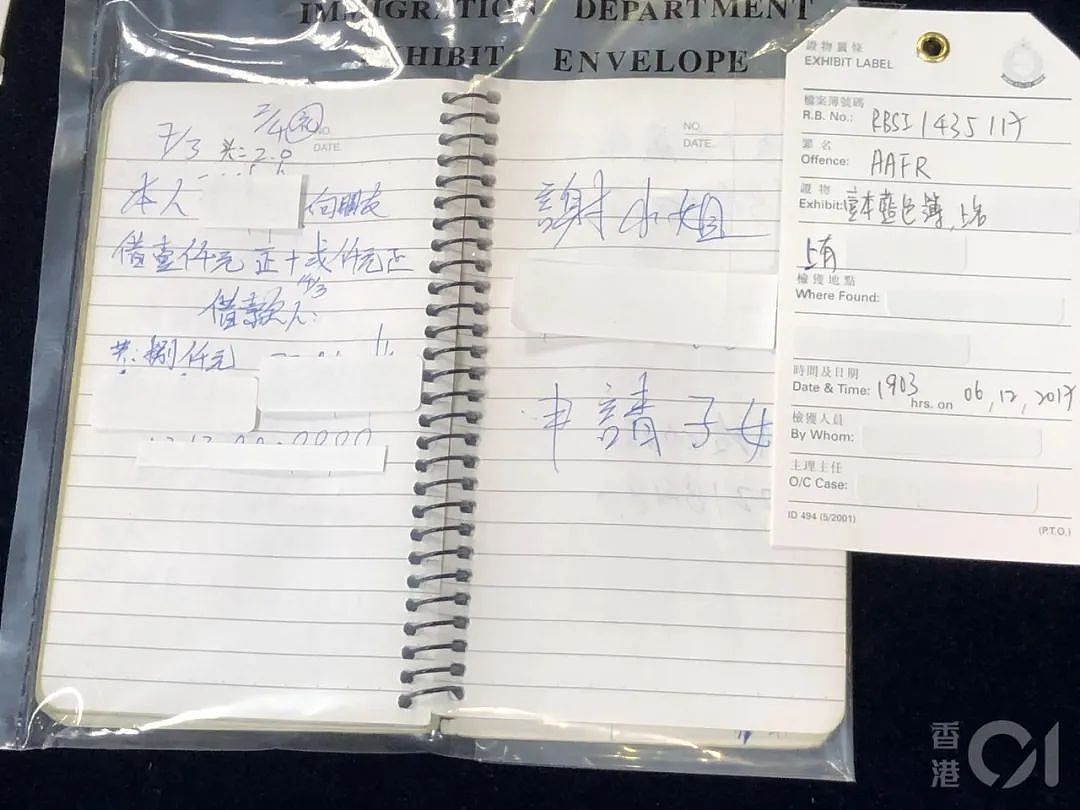 IMMIGRATION DEPARTMENT
EXHIBIT ENVELOPE
2/4
7/3
NO.
DATE.
本人
向朋友
借壹仟元正十弍仟元正
14/3
借款人:
共:捌仟元
NO.
DATE.
謝小姐
申請子女
證物籤條
EXHIBIT LABEL
檔案簿號碼
R.B. No.: RBSI 1435 117
罪名
Offence: AAFR
證物
Exhibit: 壹本藍色簿,
上有
檢獲地點
Where Found:
時間及日期
Date & Time: 1903 hrs. on 06,12,2017
檢獲人員
By Whom:
主理主任
O/C Case:
ID 494 (5/2001)
(P.T.O.)
香港01